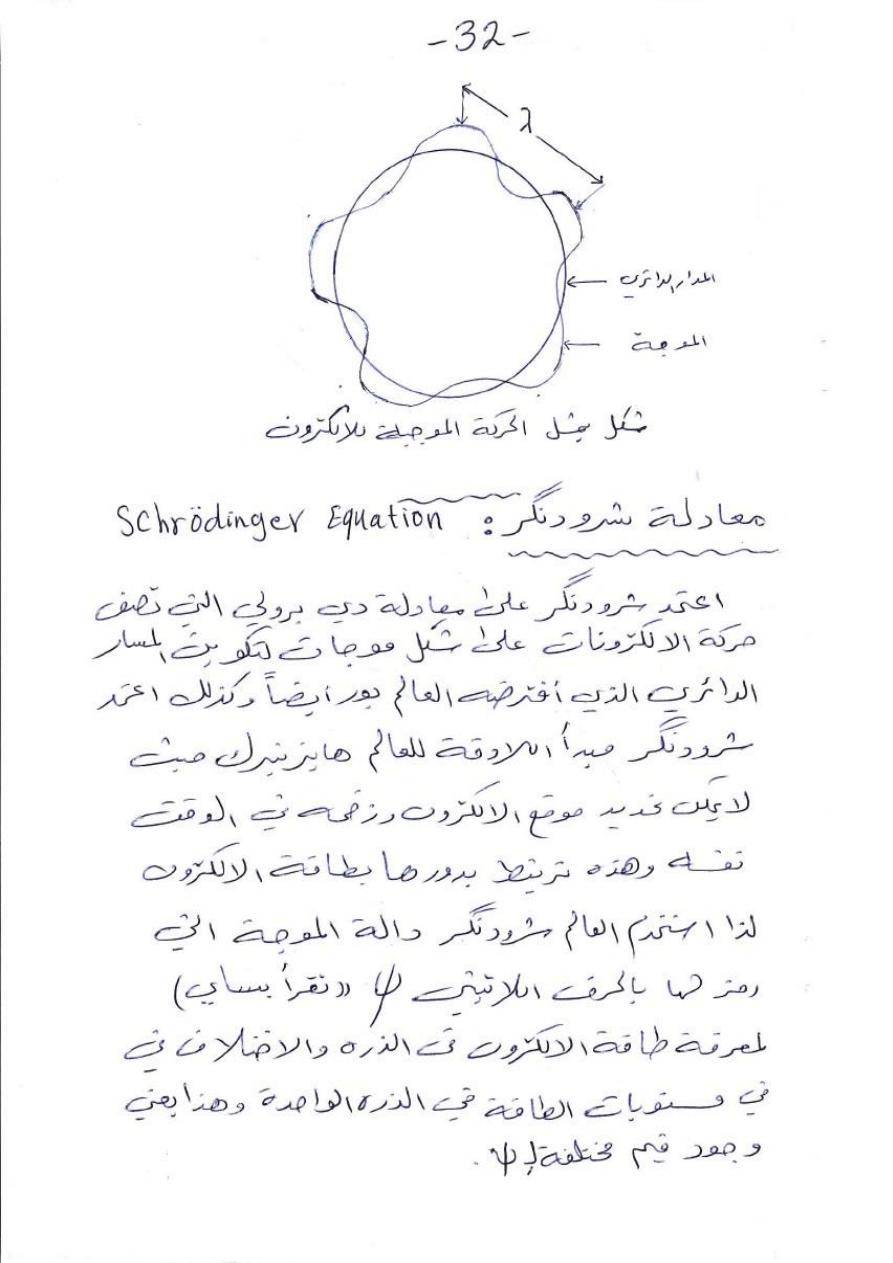 -32-
λ
المدار الدائري
الموجة
شكل يمثل الحركة الموجية للالكترون
معادلة شرودنگر : Schrödinger Equation
اعتمد شرودنگر على معادلة دي برولي التي تصف
حركة الالكترونات على شكل موجات لتكوين المسار
الدائري الذي أفترضه العالم بور أيضاً وكذلك اعتمد
شرودنگر مبدأ اللادقة للعالم هايزنبرك حيث
لا يمكن تحديد موقع الالكترون وزخمه في الوقت
نفسه وهذه ترتبط بدورها بطاقة الالكترون
لذا استخدم العالم شرودنگر دالة الموجة التي
رمز لها بالحرف اللاتيني ψ ((تقرأ بساي)
لمعرفة طاقة الالكترون في الذره والاختلاف في
في مستويات الطاقة في الذره الواحدة وهذا يعني
وجود قيم مختلفة لـ ψ .